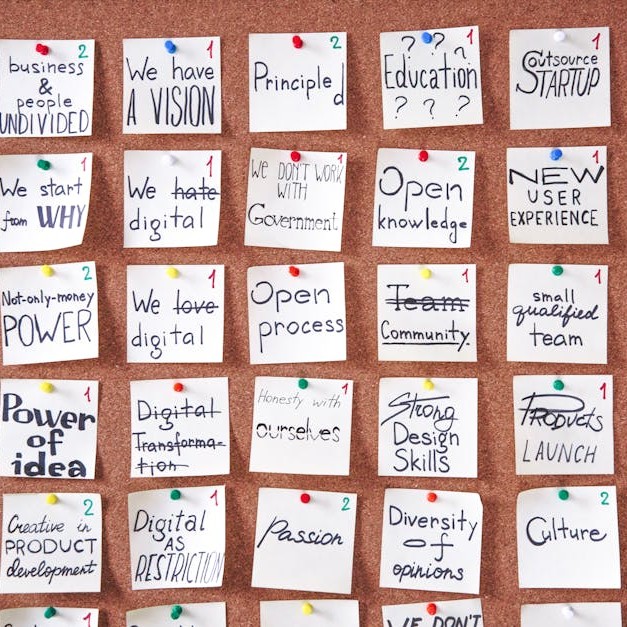 2
business
&
people
UNDIVIDED
1
We have
A VISION
2
Principled
1
? ? ?
Education
? ? ?
1
Outsource
STARTUP
1
We start
from WHY
1
We hate
digital
1
WE DON'T WORK
WITH
Government
2
Open
knowledge
1
NEW
USER
EXPERIENCE
2
Not-only-money
POWER
1
We love
digital
Open
process
1
Team
Community
1
small
qualified
team
1
Power
of
idea
Digital
Transforma-
tion
1
Honesty with
ourselves
Strong
Design
Skills
1
Products
LAUNCH
2
Creative in
PRODUCT
development
1
Digital
AS
RESTRICTION
2
Passion
Diversity
of
opinions
2
Culture
1
WE DON'T